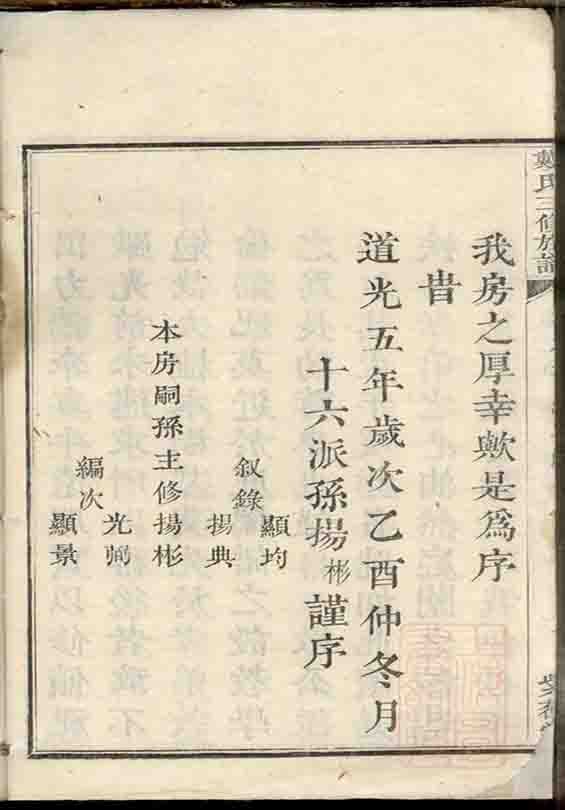 戴氏三修族譜
我房之厚幸歟是為序
旹
道光五年歲次乙酉仲冬月
十六派孫揚彬謹序
顯均
敘錄
揚典
本房嗣孫主修揚彬
光弼
編次
顯景